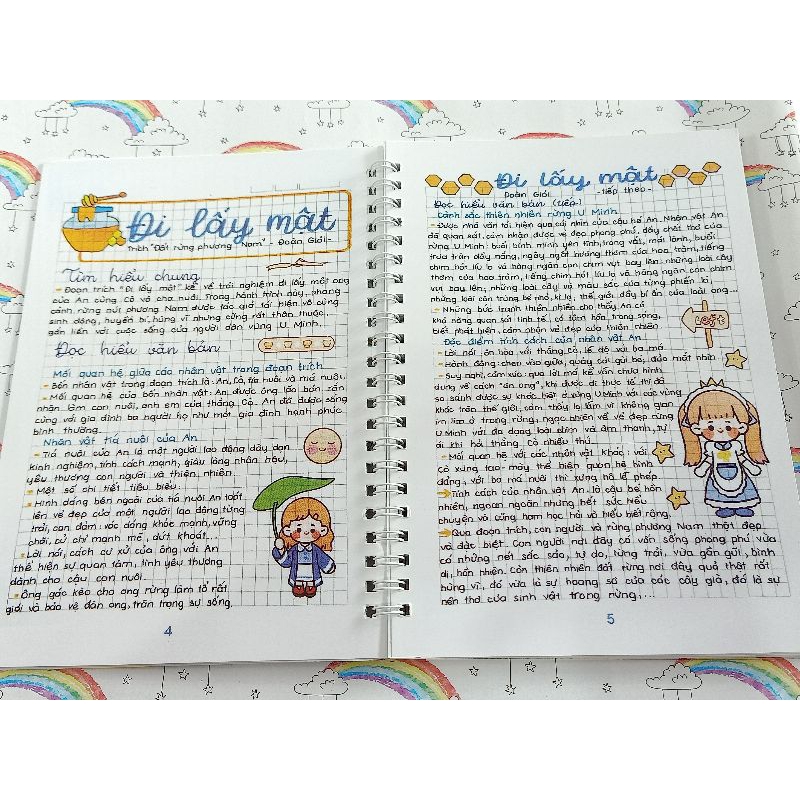 Đi lấy mật
Trích "Đất rừng phương Nam" - Đoàn Giỏi -
Tìm hiểu chung
- Đoạn trích "Đi lấy mật" kể về trải nghiệm đi lấy mật ong
của An cùng Cò và cha nuôi. Trong hành trình này, phong
cảnh rừng núi phương Nam được tác giả tái hiện vô cùng
sinh động, huyền bí, hùng vĩ nhưng cũng rất thân thuộc,
gắn liền với cuộc sống của người dân vùng U Minh.
Đọc hiểu văn bản
Mối quan hệ giữa các nhân vật trong đoạn trích
- Bốn nhân vật trong đoạn trích là: An, Cò, tía nuôi và má nuôi.
- Mối quan hệ của bốn nhân vật: An được ông lão bán rắn
nhận làm con nuôi, anh em của thằng Cò. An đã được sống
cùng với gia đình ba người họ như một gia đình hạnh phúc
bình thường.
Nhân vật tía nuôi của An
- Tía nuôi của An là một người lao động dày dạn
kinh nghiệm, tính cách mạnh, giàu lòng nhân hậu,
yêu thương con người và thiên nhiên.
- Một số chi tiết tiêu biểu:
- Hình dáng bên ngoài của tía nuôi An toát
lên vẻ đẹp của một người lao động từng
trải, can đảm: vóc dáng khỏe mạnh, vững
chãi, cử chỉ mạnh mẽ, dứt khoát...
- Lời nói, cách cư xử của ông với An
thể hiện sự quan tâm, tình yêu thương
dành cho cậu con nuôi.
- Ông gác kèo cho ong rừng làm tổ rất
giỏi và bảo vệ đàn ong, trân trọng sự sống.
4
Đi lấy mật
Đoàn Giỏi - tiếp theo -
Đọc hiểu văn bản (tiếp)
Cảnh sắc thiên nhiên rừng U Minh
- Được nhà văn tái hiện qua cái nhìn của cậu bé An. Nhân vật An
đã quan sát, cảm nhận được vẻ đẹp phong phú, đầy chất thơ của
rừng U Minh: buổi bình minh yên tĩnh, trong vắt, mát lành, buổi
trưa tràn đầy nắng, ngây ngất hương thơm của hoa tràm, tiếng
chim hót líu lo và hàng ngàn con chim vụt bay lên; những loài cây
thơm của hoa tràm, tiếng chim hót líu lo và hàng ngàn con chim
vụt bay lên; những loài cây và màu sắc của từng phiến lá,
những loài côn trùng bé nhỏ, kì lạ; thế giới đầy bí ẩn của loài ong...
- Những bức tranh thiên nhiên cho thấy An có
khả năng quan sát tinh tế, có tâm hồn trong sáng,
biết phát hiện, cảm nhận vẻ đẹp của thiên nhiên
Đặc điểm tính cách của nhân vật An
- Lời nói: ôn hòa với thằng Cò, lễ độ với ba má
- Hành động: chen vào giữa, quảy cái gùi bé, đảo mắt nhìn
- Suy nghĩ, cảm xúc: qua lời má kể vẫn chưa hình
dung về cách "ăn ong", khi được đi thực tế thì đã
so sánh được sự khác biệt ở vùng U Minh với các vùng
khác trên thế giới, cảm thấy lạ lẫm vì không gian
im lìm ở trong rừng, ngạc nhiên về vẻ đẹp rừng
U Minh với đa dạng loài chim và âm thanh, tự
đi khi hỏi thằng Cò nhiều thứ...
- Mối quan hệ với các nhân vật khác: với
Cò xưng tao - mày thể hiện quan hệ bình
đẳng, với ba má nuôi thì xưng hô lễ phép
Tính cách của nhân vật An là cậu bé hồn
nhiên, ngoan ngoãn nhưng hết sức hiếu
chuyện và cũng ham học hỏi và hiểu biết rộng.
Qua đoạn trích, con người và rừng phương Nam thật đẹp
và đặc biệt. Con người nơi đây có vốn sống phong phú, vừa
có những nét sắc sảo, tự do, từng trải, vừa gần gũi, bình
dị, hồn nhiên. Còn thiên nhiên đất rừng nơi đây quả thật rất
hùng vĩ, đó vừa là sự hoang sơ của các cây già, đó là sự
nên thơ của sinh vật trong rừng,...
5